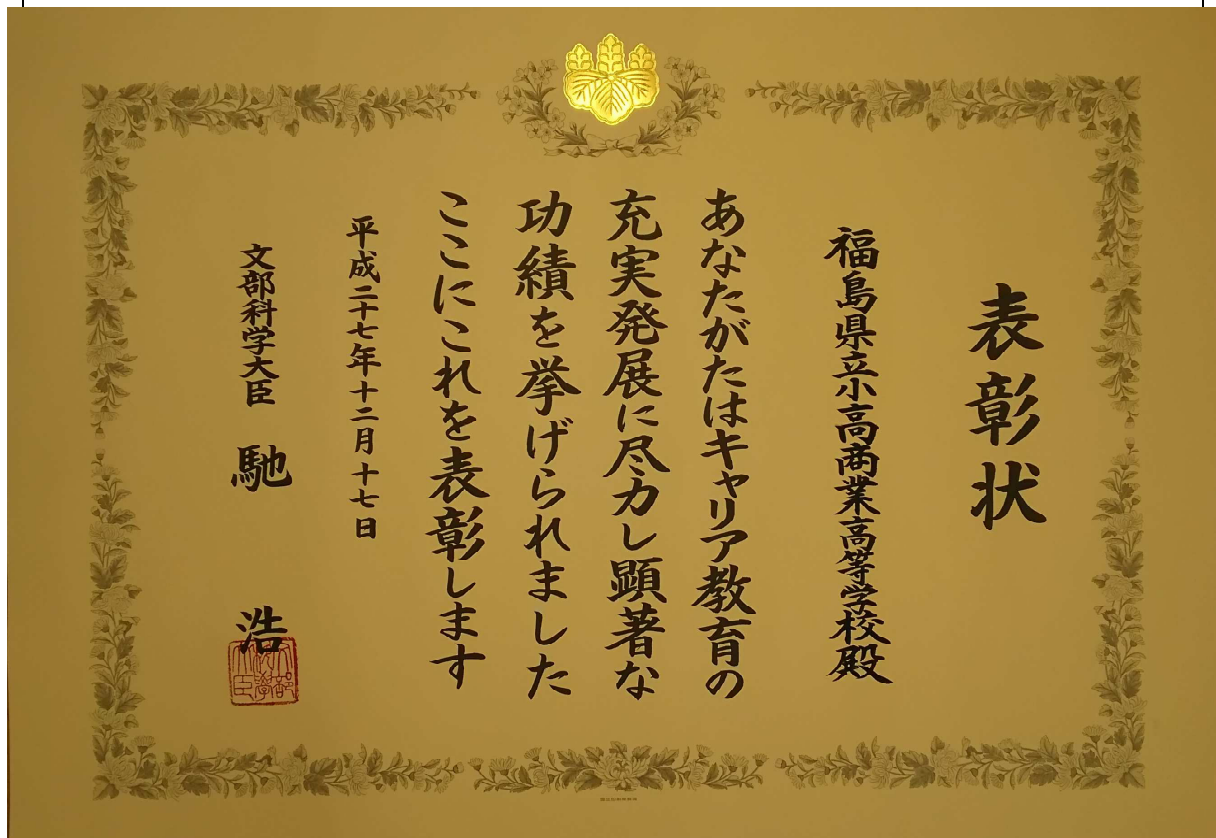 表彰状
福島県立小高商業高等学校殿
あなたがたはキャリア教育の
充実発展に尽力し顕著な
功績を挙げられました
ここにこれを表彰します
平成二十七年十二月十七日
文部科学大臣 馳 浩